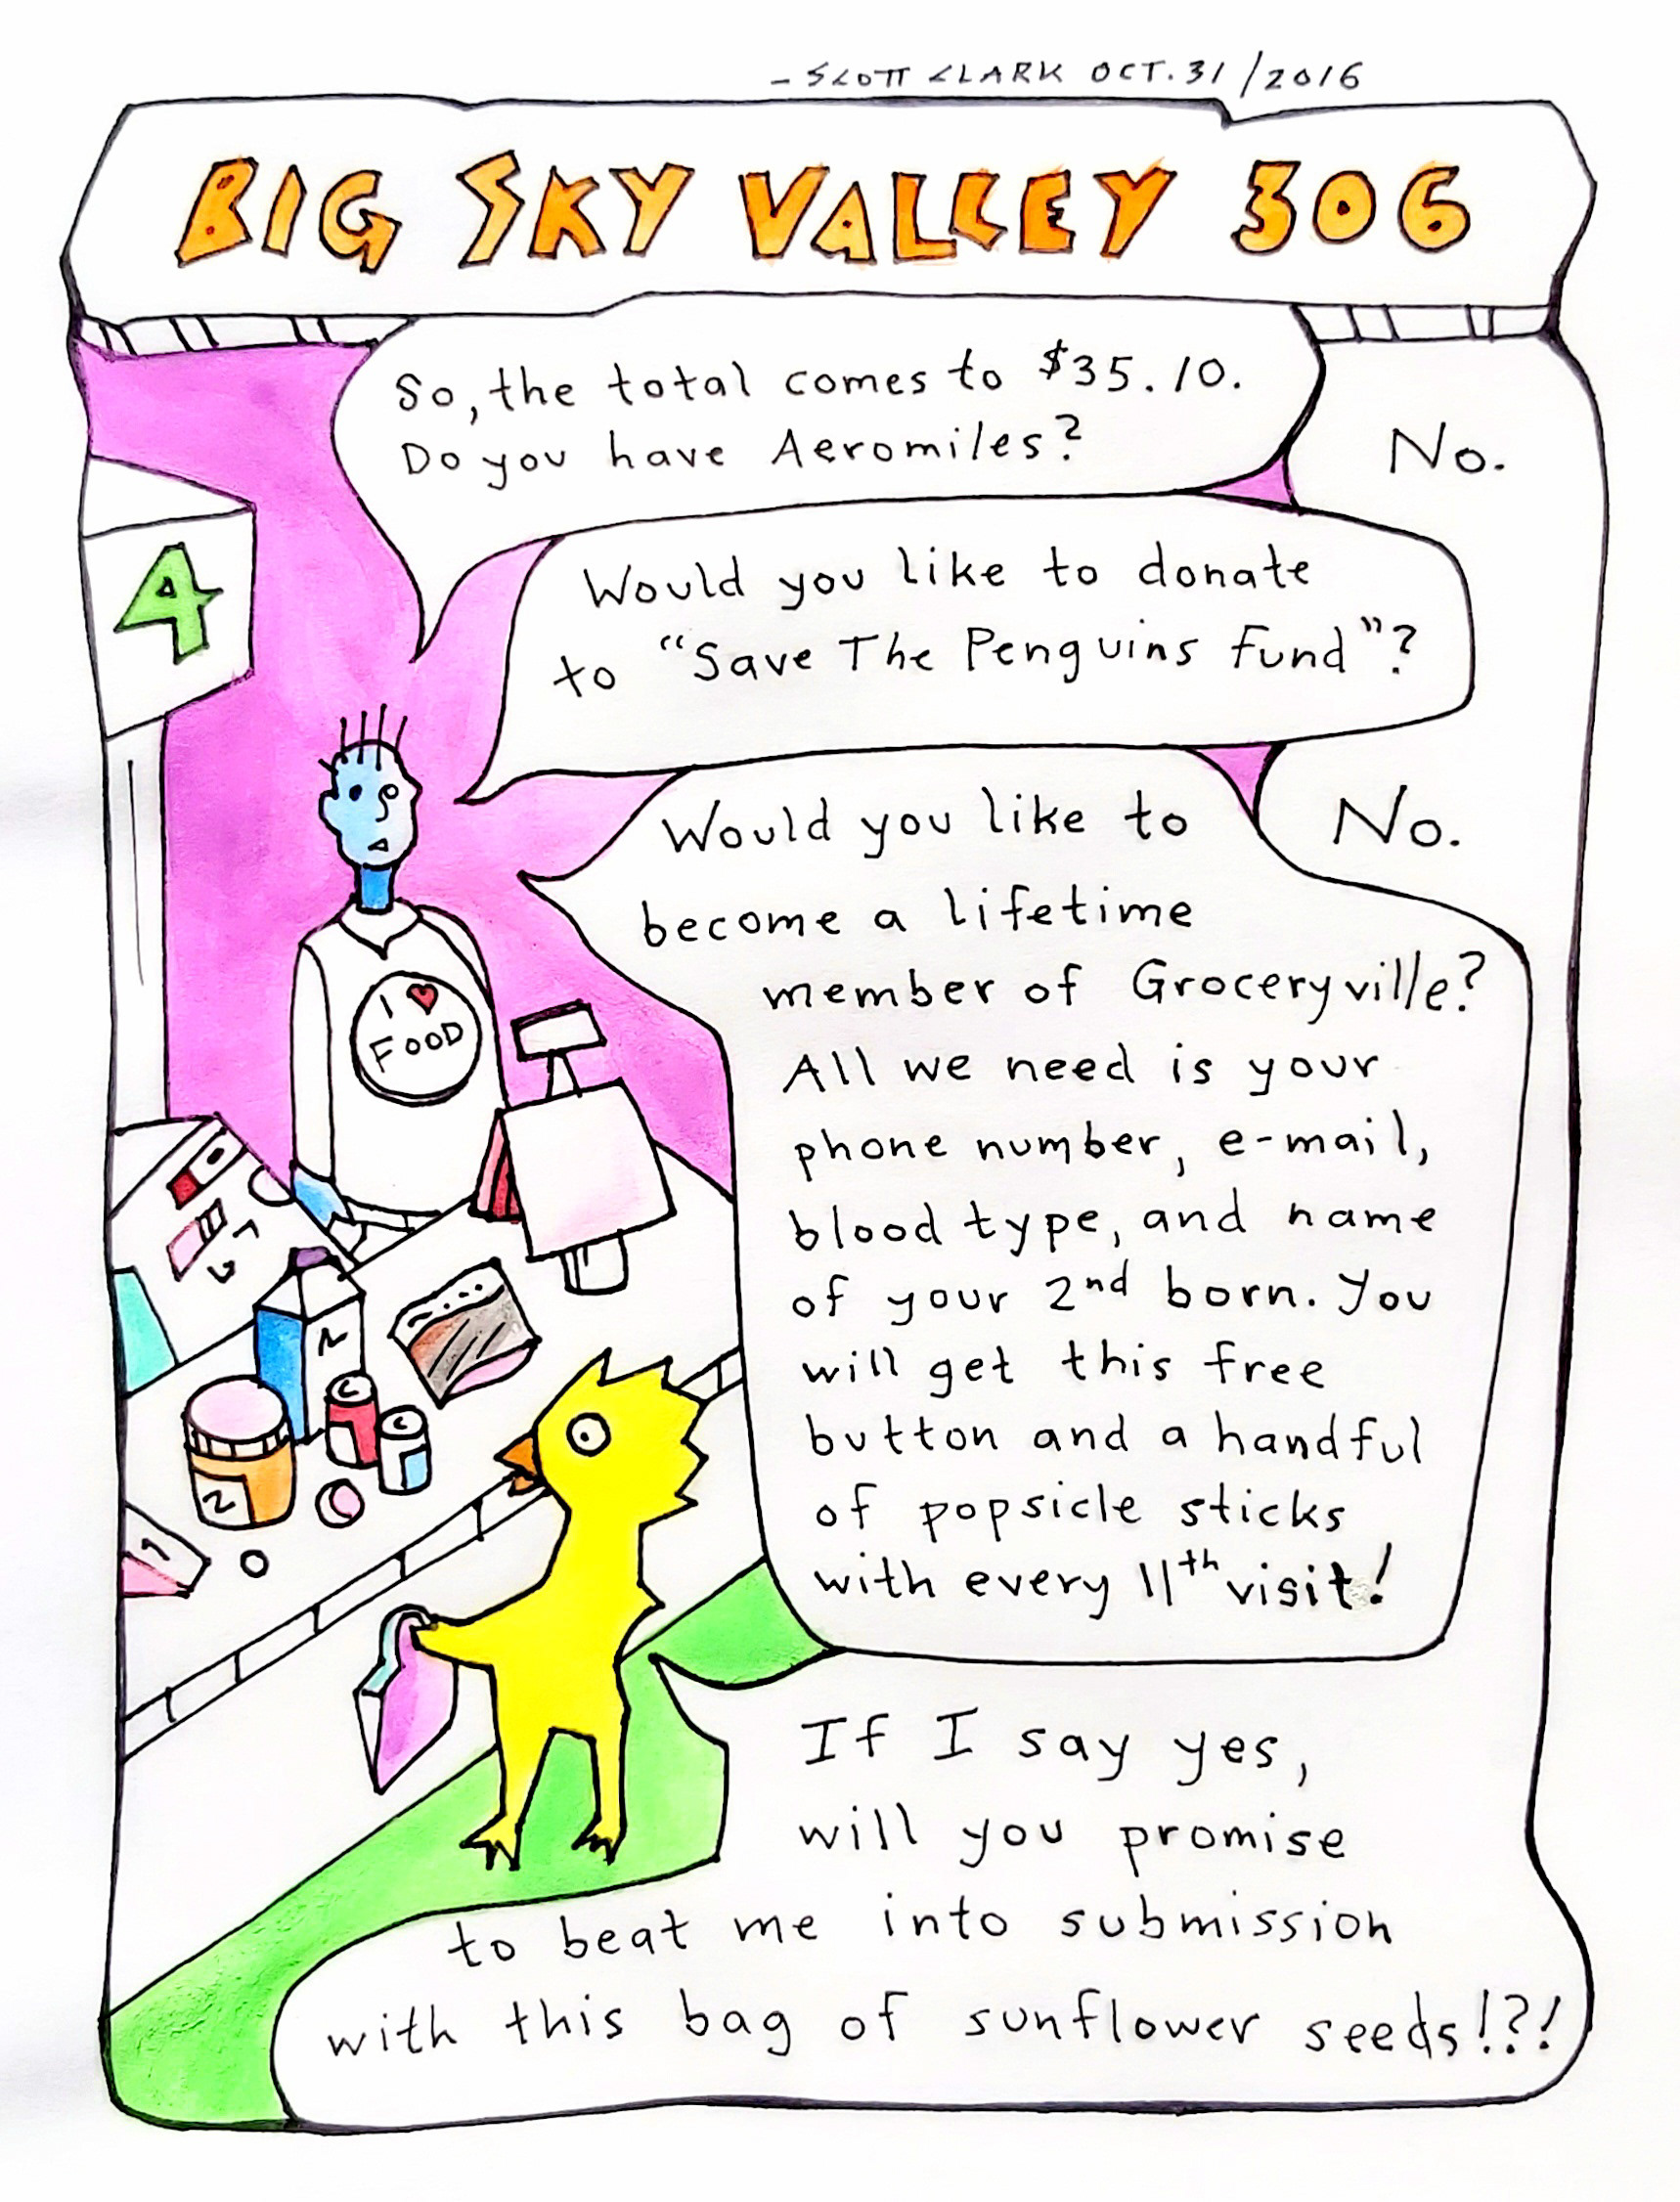 - SCOTT CLARK OCT. 31/2016
BIG SKY VALLEY 306
So, the total comes to $35.10.
Do you have Aeromiles?
No.
Would you like to donate
to "Save The Penguins Fund"?
No.
Would you like to
become a lifetime
member of Groceryville?
All we need is your
phone number, e-mail,
blood type, and name
of your 2nd born. You
will get this free
button and a handful
of popsicle sticks
with every 11th visit!
If I say yes,
will you promise
to beat me into submission
with this bag of sunflower seeds!?!
4
I ♥
FOOD
C
C
2